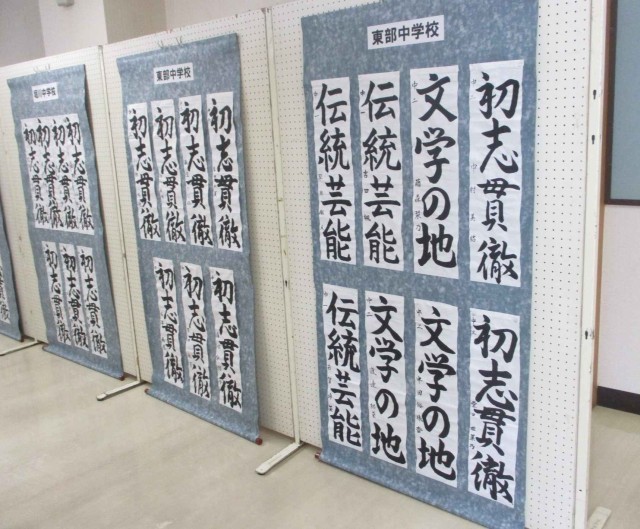 東部中学校
初志貫徹
文学の地
伝統芸能
伝統芸能
初志貫徹
文学の地
文学の地
伝統芸能
東部中学校
初志貫徹
初志貫徹
初志貫徹
初志貫徹
初志貫徹
初志貫徹
初志貫徹
川中学校
初志貫徹
初志貫徹
初志貫徹
初志貫徹
初志貫徹
初志貫徹
初志貫徹